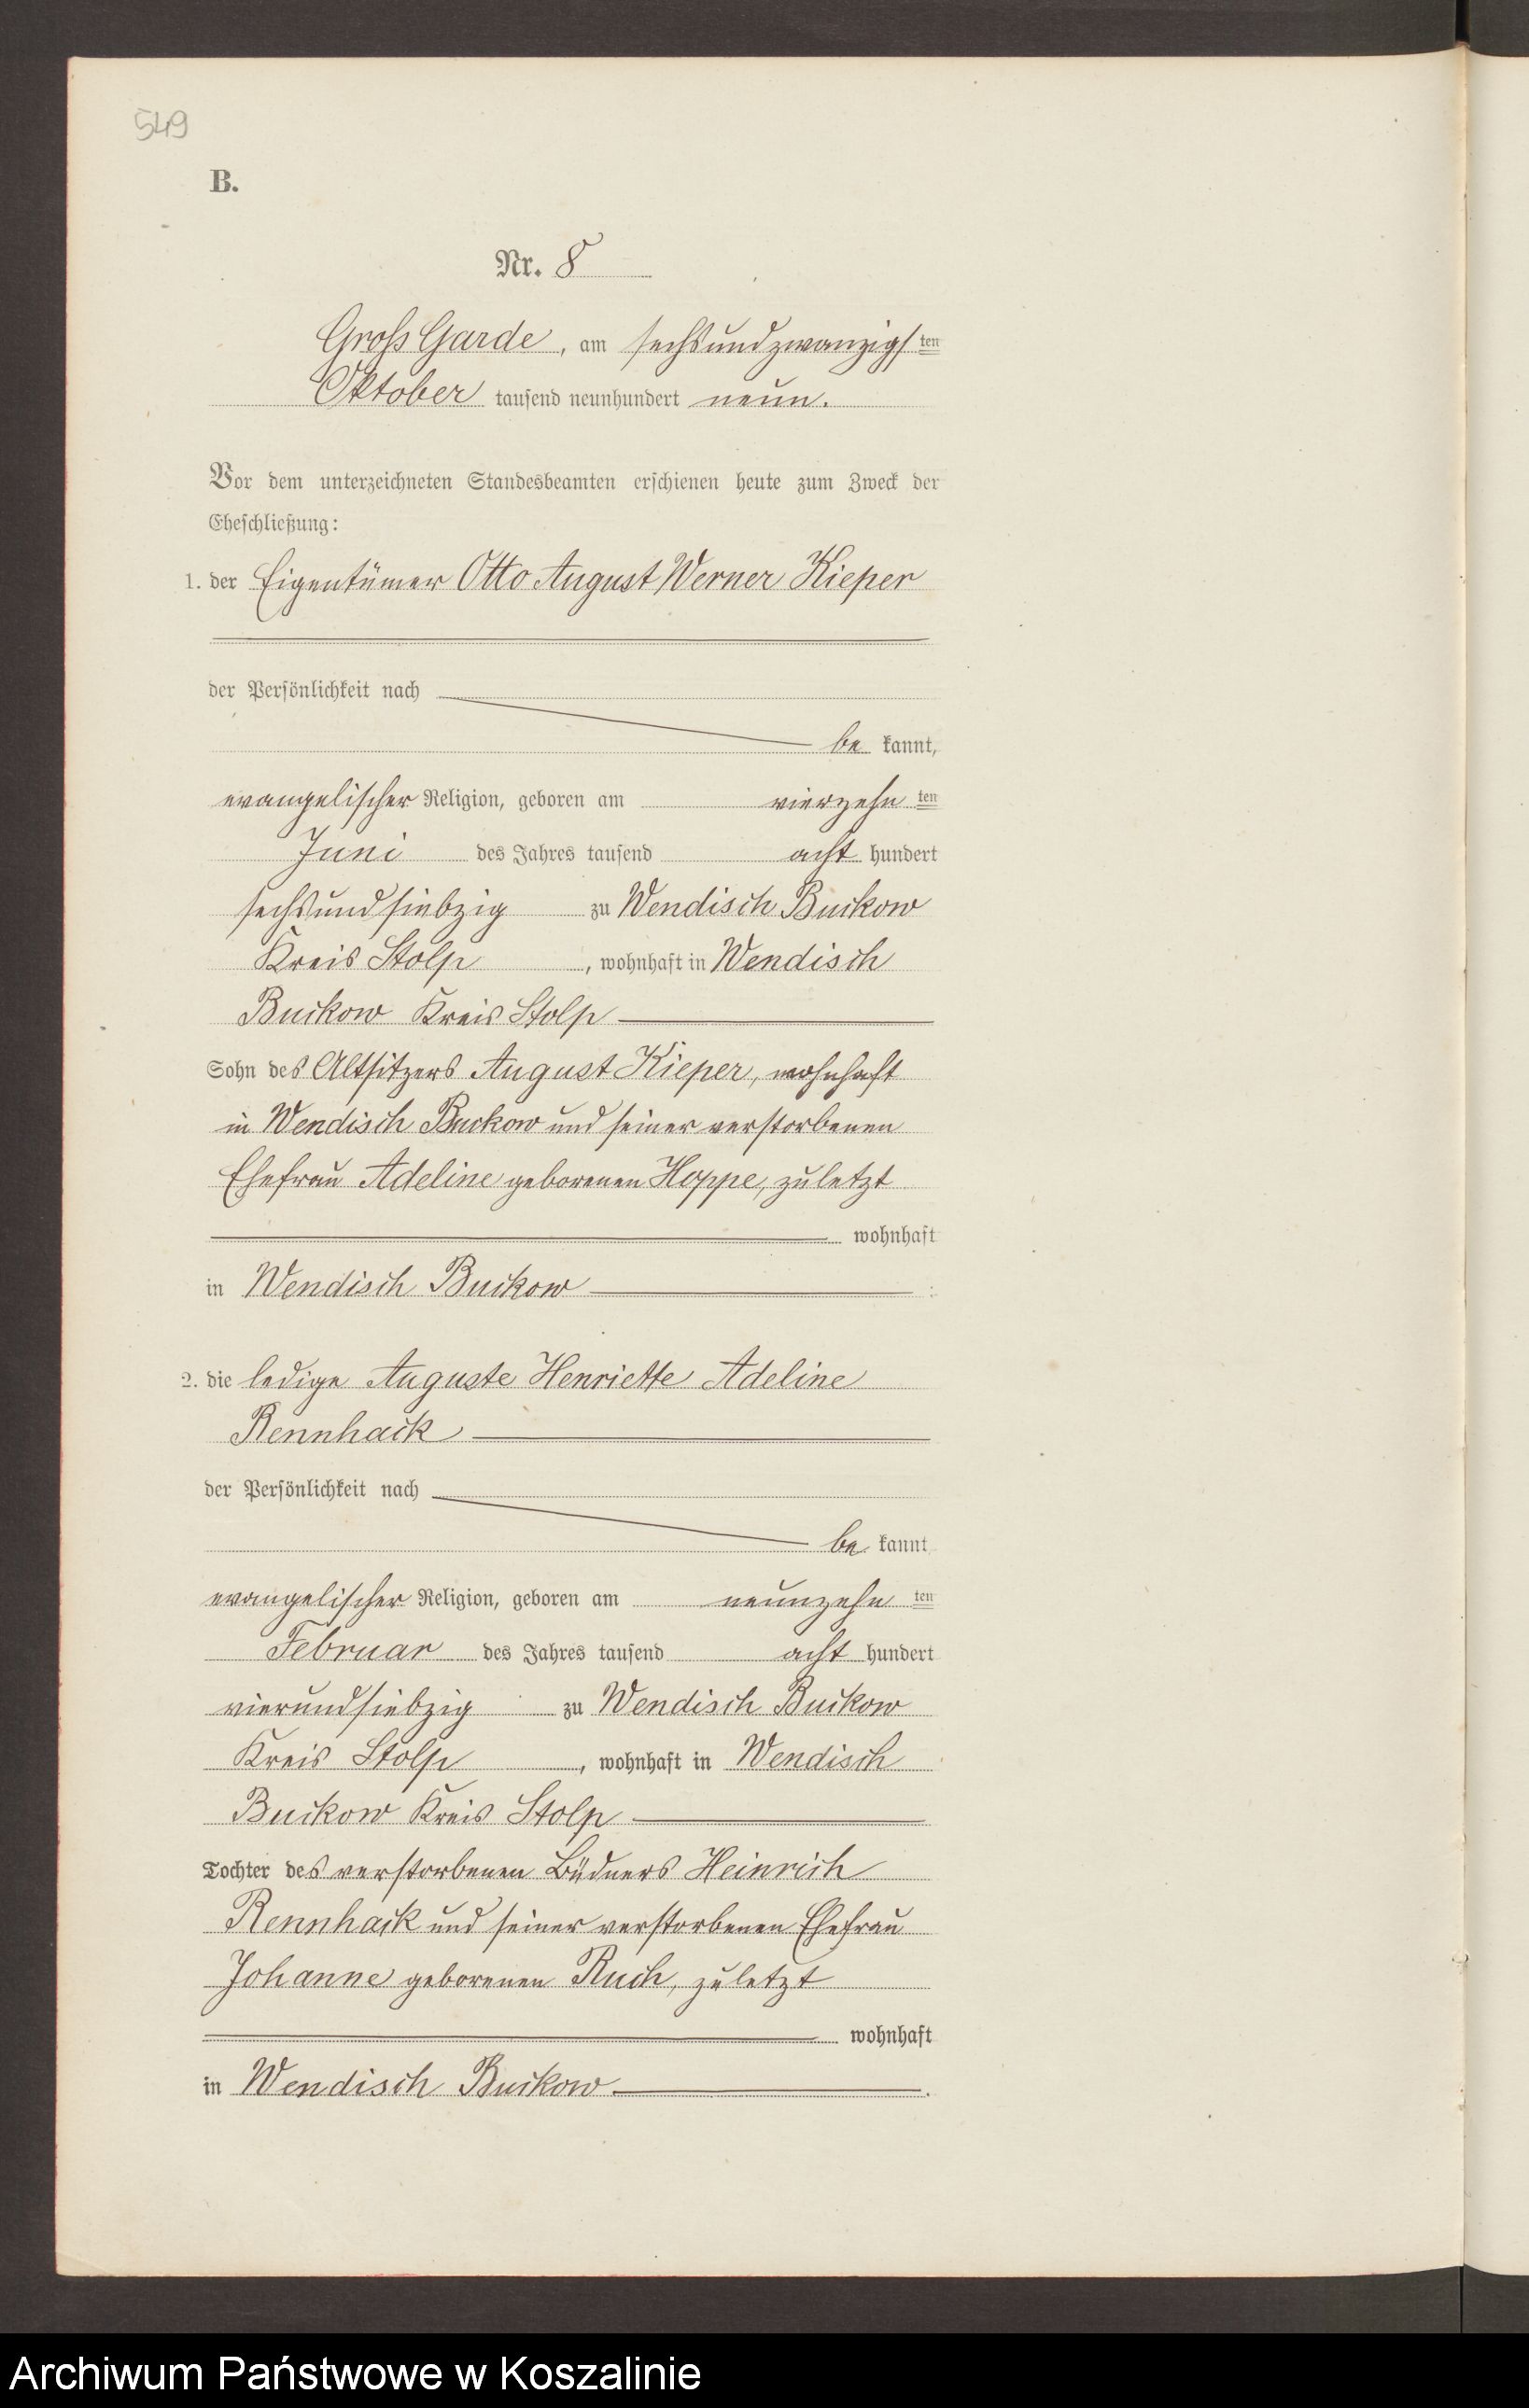 549
B.
Nr. 8
Gross Garde, am sechsundzwanzigsten
Oktober tausend neunhundert neun.
Vor dem unterzeichneten Standesbeamten erschienen heute zum Zweck der
Eheschließung:
1. der Eigentümer Otto August Werner Kieper
der Persönlichkeit nach
be kannt,
evangelischer Religion, geboren am vierzehn ten
Juni des Jahres tausend acht hundert
sechsundsiebzig zu Wendisch Buckow
Kreis Stolp, wohnhaft in Wendisch
Buckow Kreis Stolp
Sohn des Altsitzers August Kieper, wohnhaft
in Wendisch Buckow und seiner verstorbenen
Ehefrau Adeline geborenen Hoppe, zuletzt
wohnhaft
in Wendisch Buckow :
2. die ledige Auguste Henriette Adeline
Rennhack
der Persönlichkeit nach
be kannt
evangelischer Religion, geboren am neunzehn ten
Februar des Jahres tausend acht hundert
vierundsiebzig zu Wendisch Buckow
Kreis Stolp, wohnhaft in Wendisch
Buckow Kreis Stolp
Tochter des verstorbenen Büdners Heinrich
Rennhack und seiner verstorbenen Ehefrau
Johanne geborenen Ruch, zuletzt
wohnhaft
in Wendisch Buckow.
Archiwum Państwowe w Koszalinie